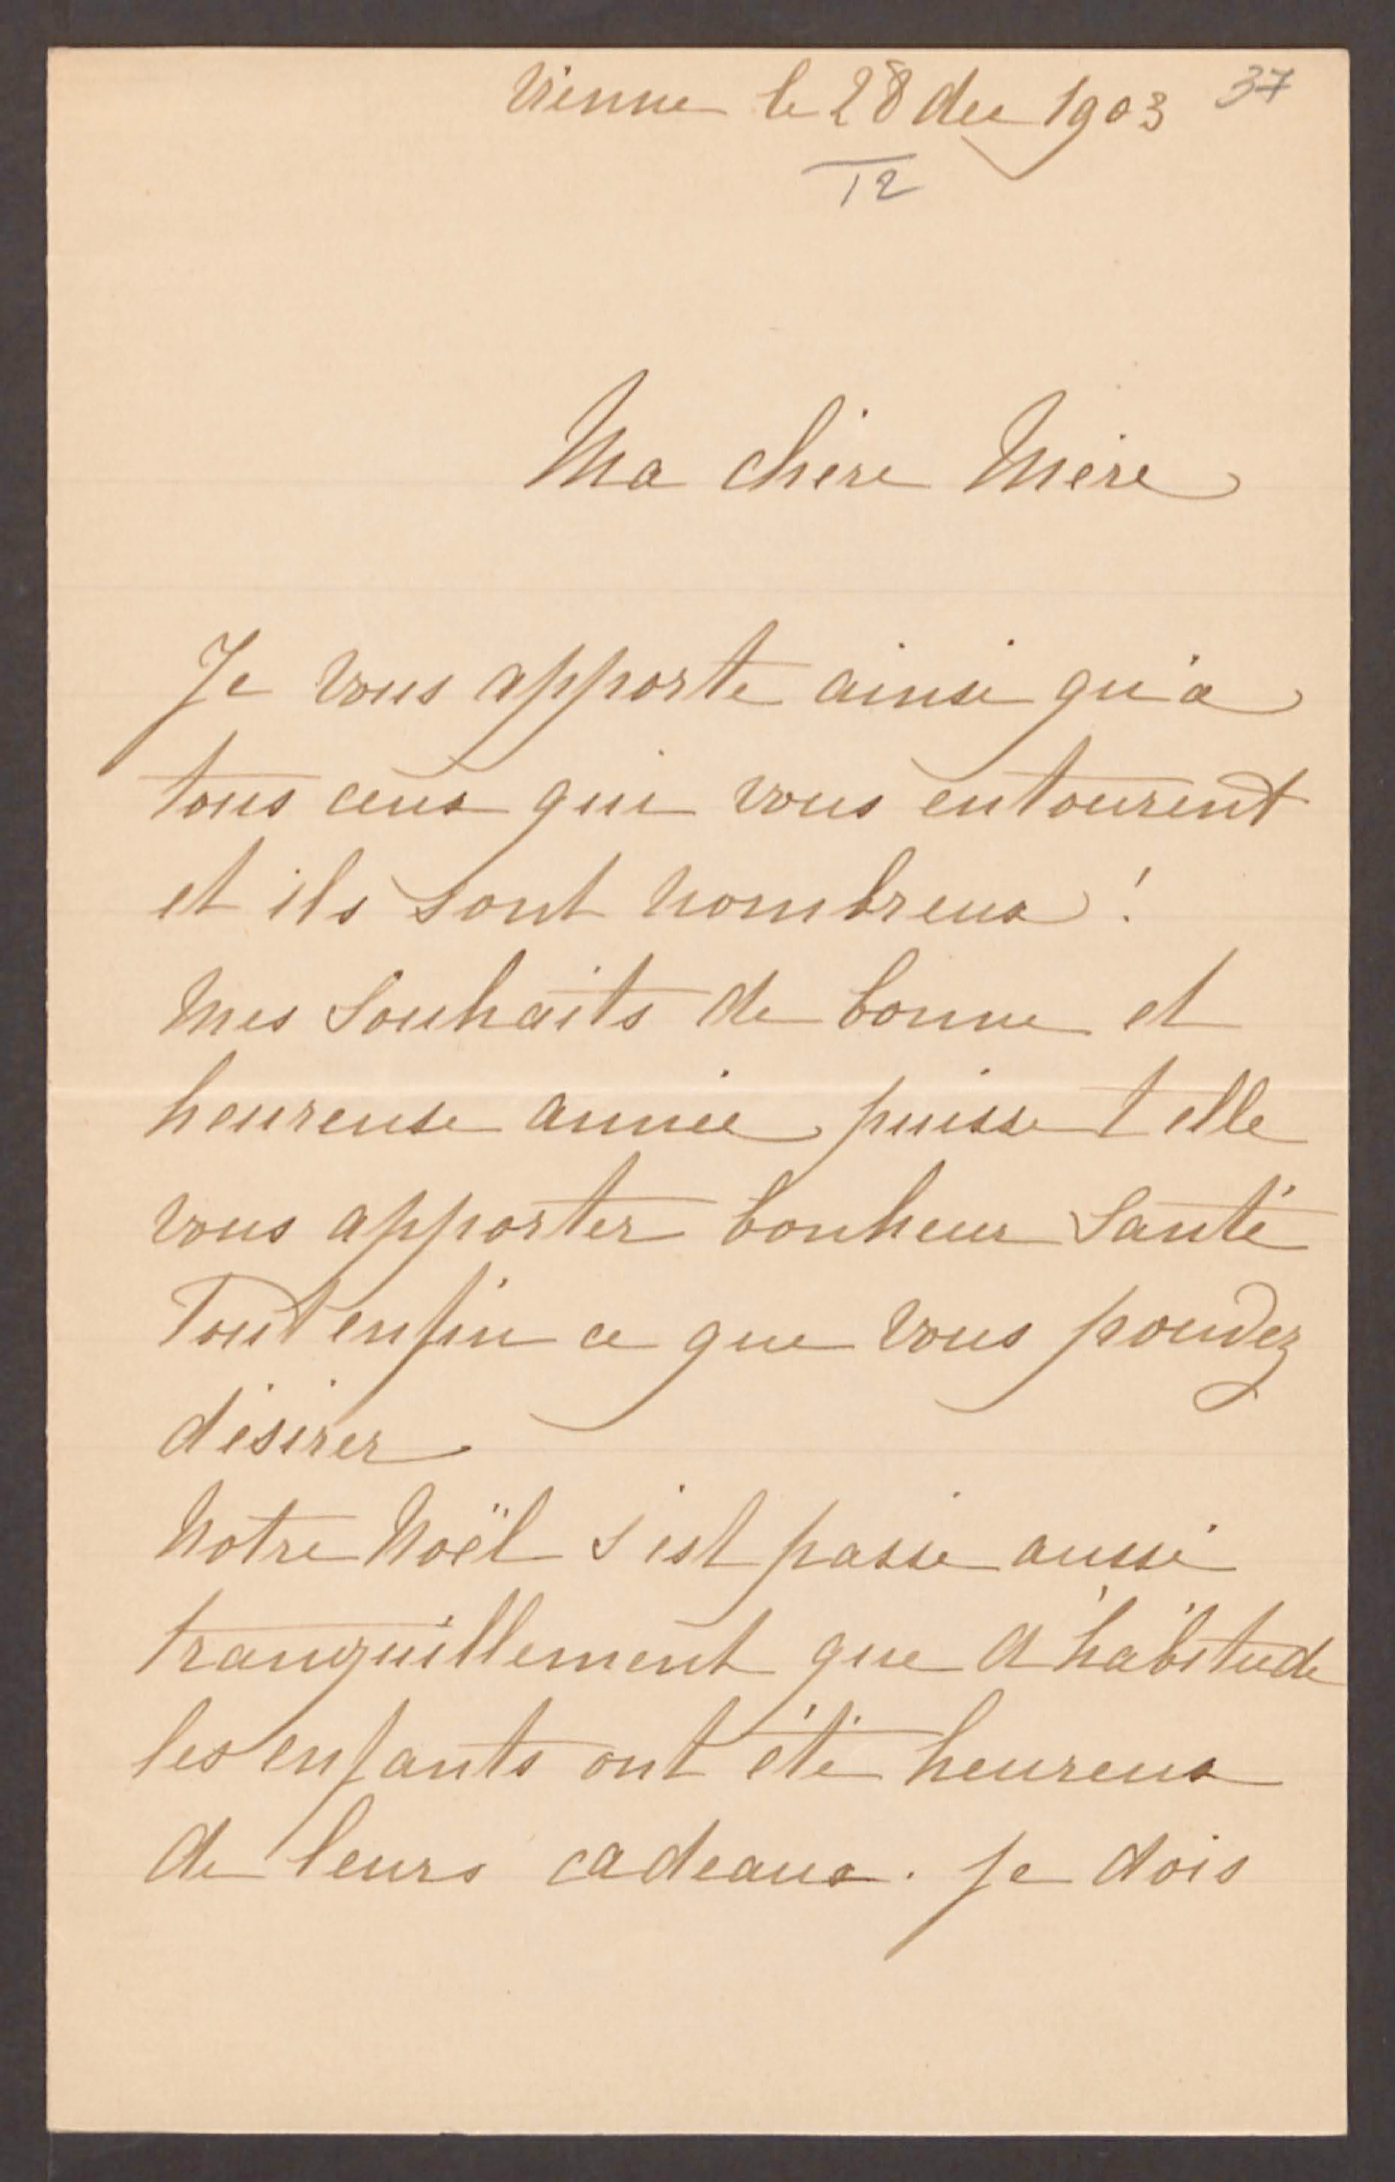 Vienne le 28 dec 1903 37
12
Ma chère Mère
Je vous apporte ainsi qu'à
tous ceux qui vous entourent
et ils sont nombreux !
Mes souhaits de bonne et
heureuse année puisse t elle
vous apporter bonheur santé
Tout enfin ce que vous pouvez
désirer
Notre Noël s'est passé aussi
tranquillement que d'habitude
les enfants ont été heureux
de leurs cadeaux. je dois